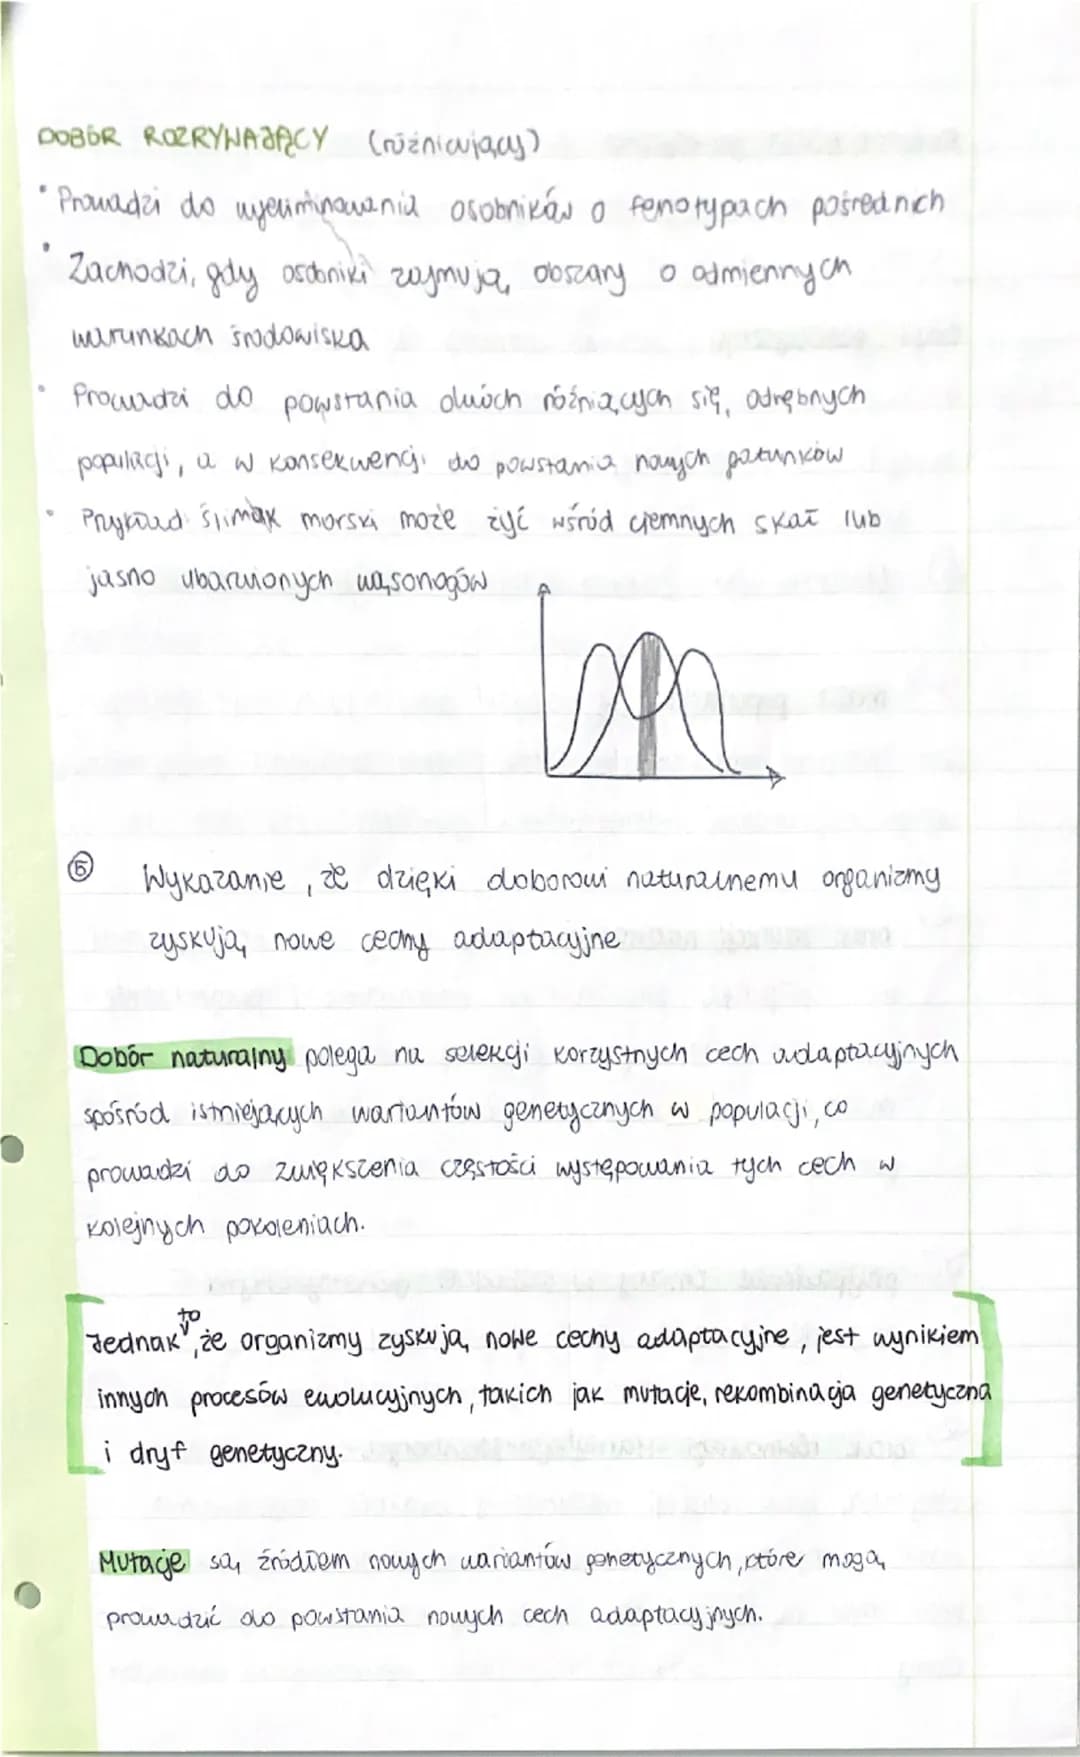 DOBÓR ROZRYWAJĄCY (różnicujący)
• Prowadzi do wyeliminowania osobników o fenotypach pośrednich
• Zachodzi, gdy osobniki zajmują obszary o odmiennych
warunkach środowiska
• Prowadzi do powstania dwóch różniących się, odrębnych
populacji, a w konsekwencji do powstania nowych gatunków
• Przykład: ślimak morski może żyć wśród ciemnych skał lub
jasno ubarwionych wąsonogów
⑤ Wykazanie, że dzięki doborowi naturalnemu organizmy
zyskują nowe cechy adaptacyjne
Dobór naturalny polega na selekcji korzystnych cech adaptacyjnych
spośród istniejących wariantów genetycznych w populacji, co
prowadzi do zwiększenia częstości występowania tych cech w
kolejnych pokoleniach.
Jednak to, że organizmy zyskują nowe cechy adaptacyjne, jest wynikiem
innych procesów ewolucyjnych, takich jak mutacje, rekombinacja genetyczna
i dryf genetyczny.
Mutacje są źródłem nowych wariantów genetycznych, które mogą
prowadzić do powstania nowych cech adaptacyjnych.